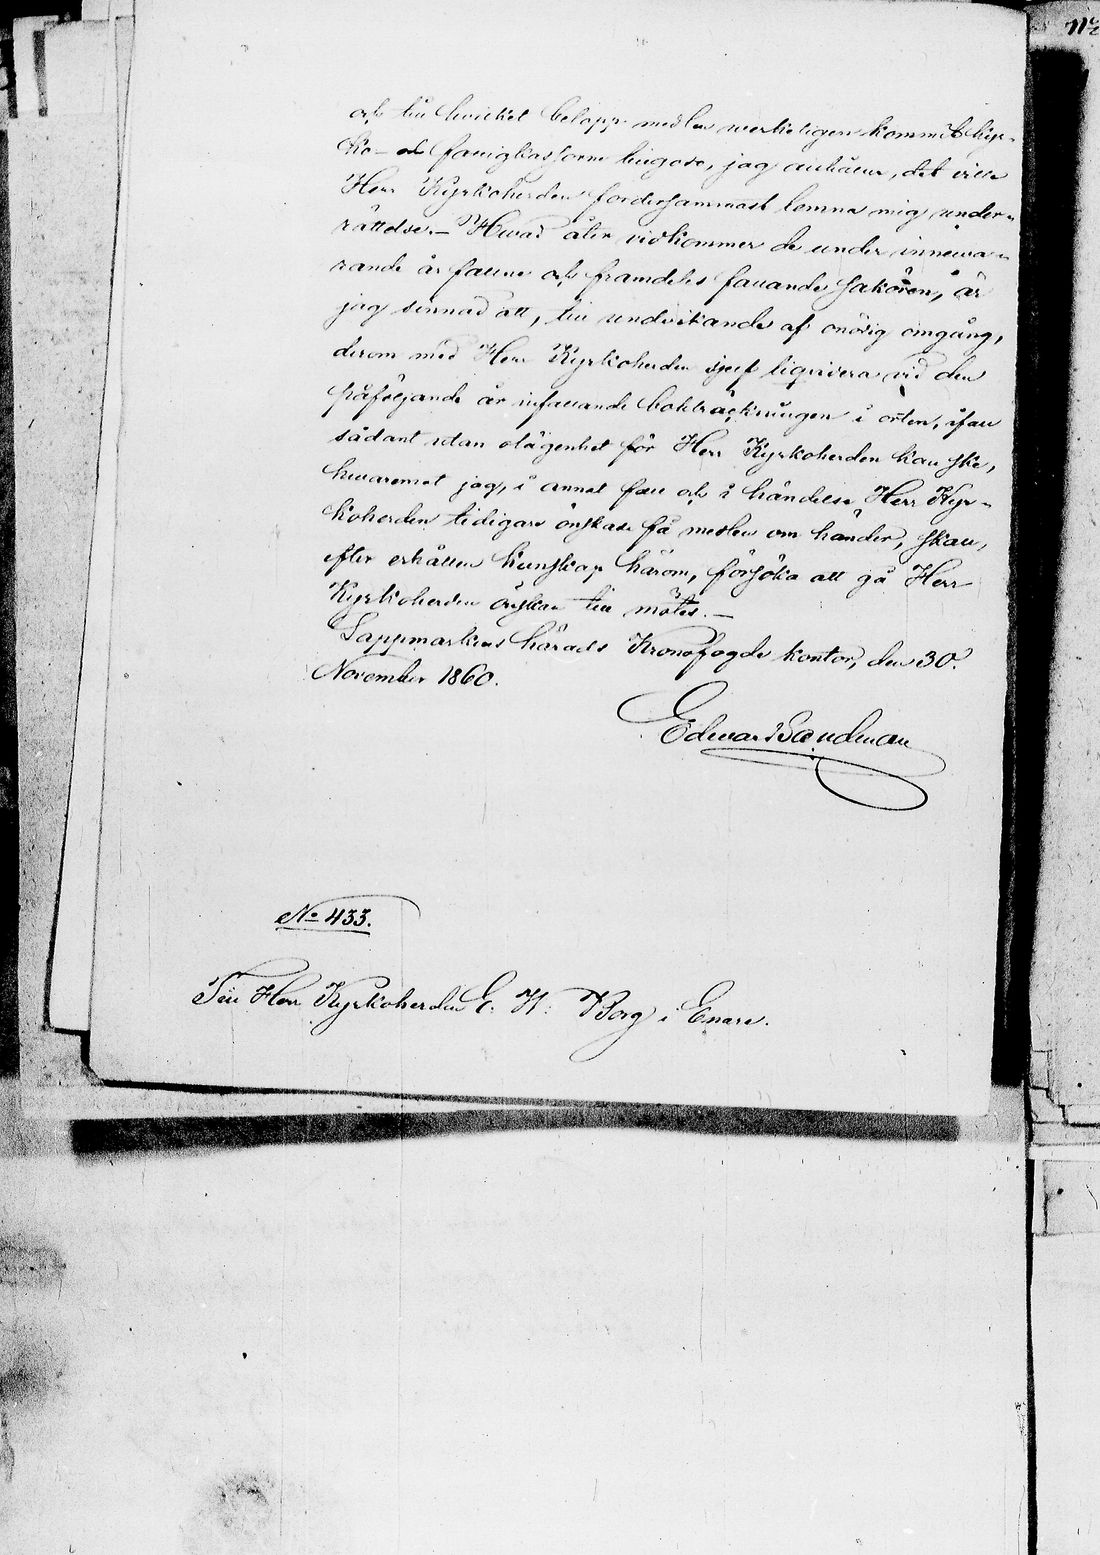 och till hvilket belopp medlen werkeligen kommit kyr-
ko- och fattigkassorne tillgodo, jag anhåller, det ville
Herr Kyrkoherden fordersammast lemna mig under-
rättelse.— Hvad åter vidkommer de under innewa-
rande år fallne och framdeles fallande sakören, är
jag sinnad att, till undvikande af onödig omgång,
derom med Herr Kyrkoherden sjelf liqvidera vid den
påföljande år infallande Uppbörden i orten, ifall
sådant utan olägenhet för Herr Kyrkoherden kan ske,
hwaremot jag, i annat fall och i händelse Herr Kyr-
koherden tidigare önskade få medlen om händer, skall,
efter erhållen kunskap härom, försöka att gå Herr
Kyrkoherdens önskan till mötes.—
Lappmarkens härads Kronofogde kontor, den 30.
November 1860.
Edward Sandman
No 433.
Till Herr Kyrkoherden E. W. Borg i Enare.